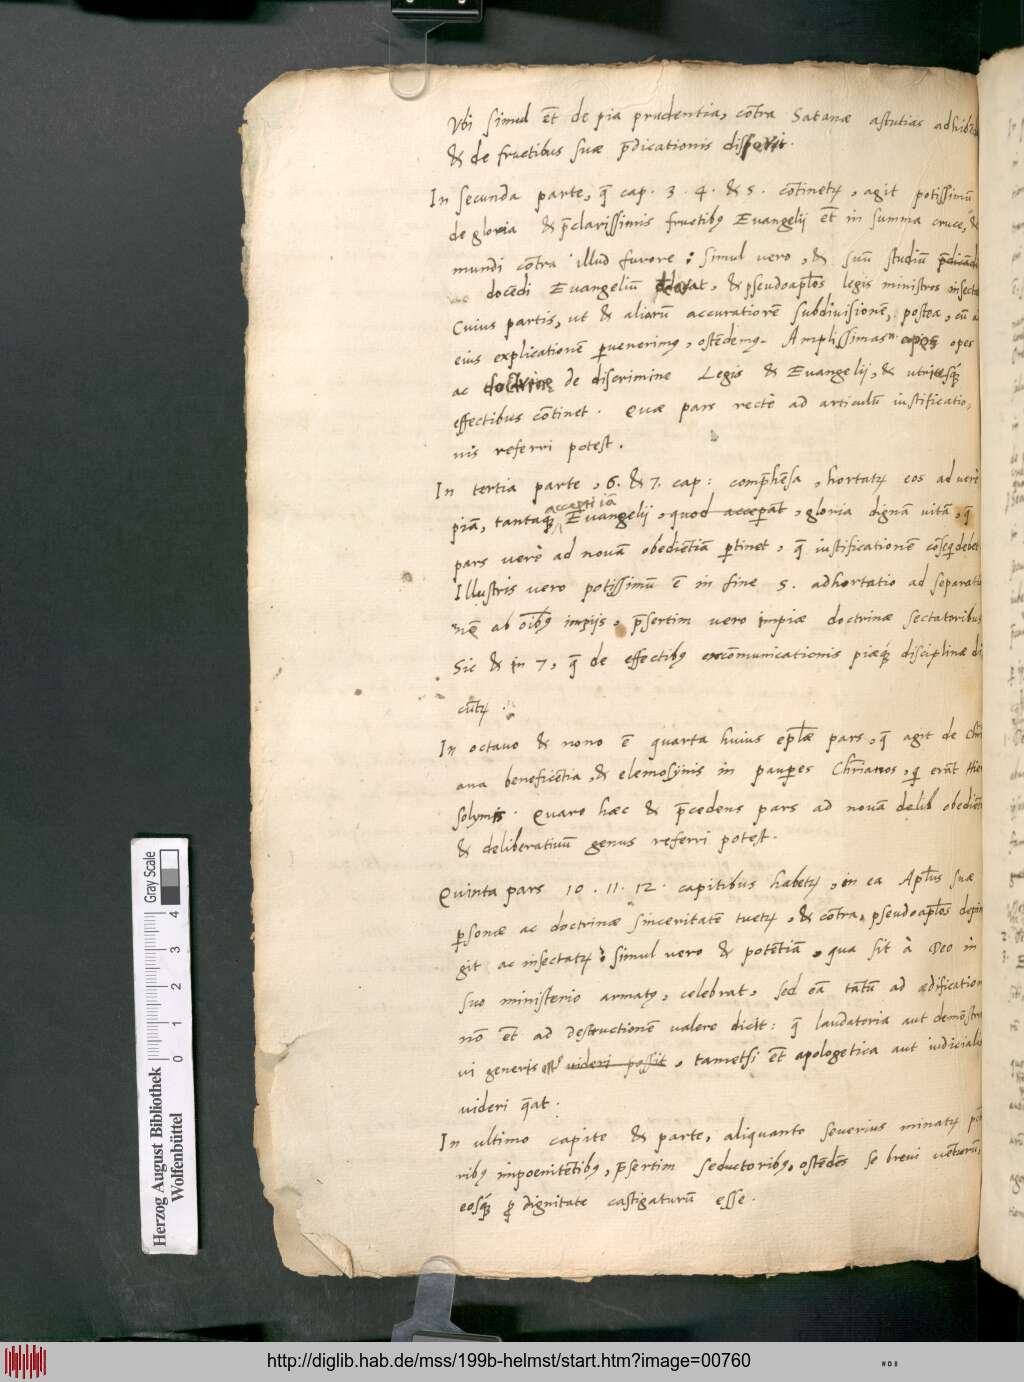 Vbi simul et̄ de pia prudentia, cōtra Satanæ astutias
& de fructibus suæ p̄dicationis disserit.
In secunda parte, q̄ cap. 3. 4. & 5. cōtinetꝛ, agit potissimū
de gloria & p̄clarissimis fructibꝰ Evangelij et̄ in summa cruce, &
mundi cōtra illud furore: simul vero, & suū studiū
docēdi Evangeliū , & pseudoapl̄os legis ministros
Cuius partis, ut & aliarū accuratiorē subdivisionē, postea, cū
eius explicationē ꝑvenerimꝰ, ostēdemꝰ. Amplissimas opes
ac doctrinæ de discrimine Legis & Evangelij, &
effectibus cōtinet. Quæ pars rectè ad articulū iustificatio,
nis referri potest.
In tertia parte, 6. & 7. cap: comp̄hēsa, hortatꝛ eos ad verè
acceptiiā
piā, tantaq́ꝫ Evangelij, quod acceperāt, gloria dignā vitā, q̄
pars verè ad novā obediētiā ꝑtinet, q̄ iustificationē cōseq̄ debet
Illustris vero potissimū ē in fine 5. adhortatio ad separatio
nē ab oībꝰ impijs, p̄sertim vero impiæ doctrinæ sectatoribus
Sic & in 7, q̄ de effectibꝰ excōmunicationis piæq́ꝫ disciplinæ di
cūtꝛ.
In octavo & nono ē quarta huius epl̄æ pars, q̄ agit de
ana beneficētia, & elemosynis in pauꝑes Chr̄ianos, q̄ erāt Hie
solymis. Quare hæc & p̄cedens pars ad novā delib obediēt
& deliberativū genus referri potest.
Quinta pars 10. 11. 12. capitibus habetꝛ, in ea Apl̄us suæ
ꝑsonæ ac doctrinæ sinceritatē tuetꝛ, & cōtra, pseudoapl̄os depin
git ac insectatꝛ: simul vero & potētiā, qua sit à Deo in
suo ministerio armatꝰ, celebrat, sed eā tātū ad ædification
nō et̄ ad destructionē valere dicit: q̄ laudatoria aut demōstra
vi generis est videri possit, tametsi et̄ apologetica aut iudicialis
videri q̄at.
In ultimo capite & parte, aliquanto severius minatꝛ
ribꝰ impoenitētibꝰ, p̄sertim seductoribꝰ, ostēdēs se brevi vēturū,
eosq́ꝫ ꝓ dignitate castigaturū esse.
Herzog August Bibliothek
Wolfenbüttel
Gray Scale
0 1 2 3 4
http://diglib.hab.de/mss/199b-helmst/start.htm?image=00760